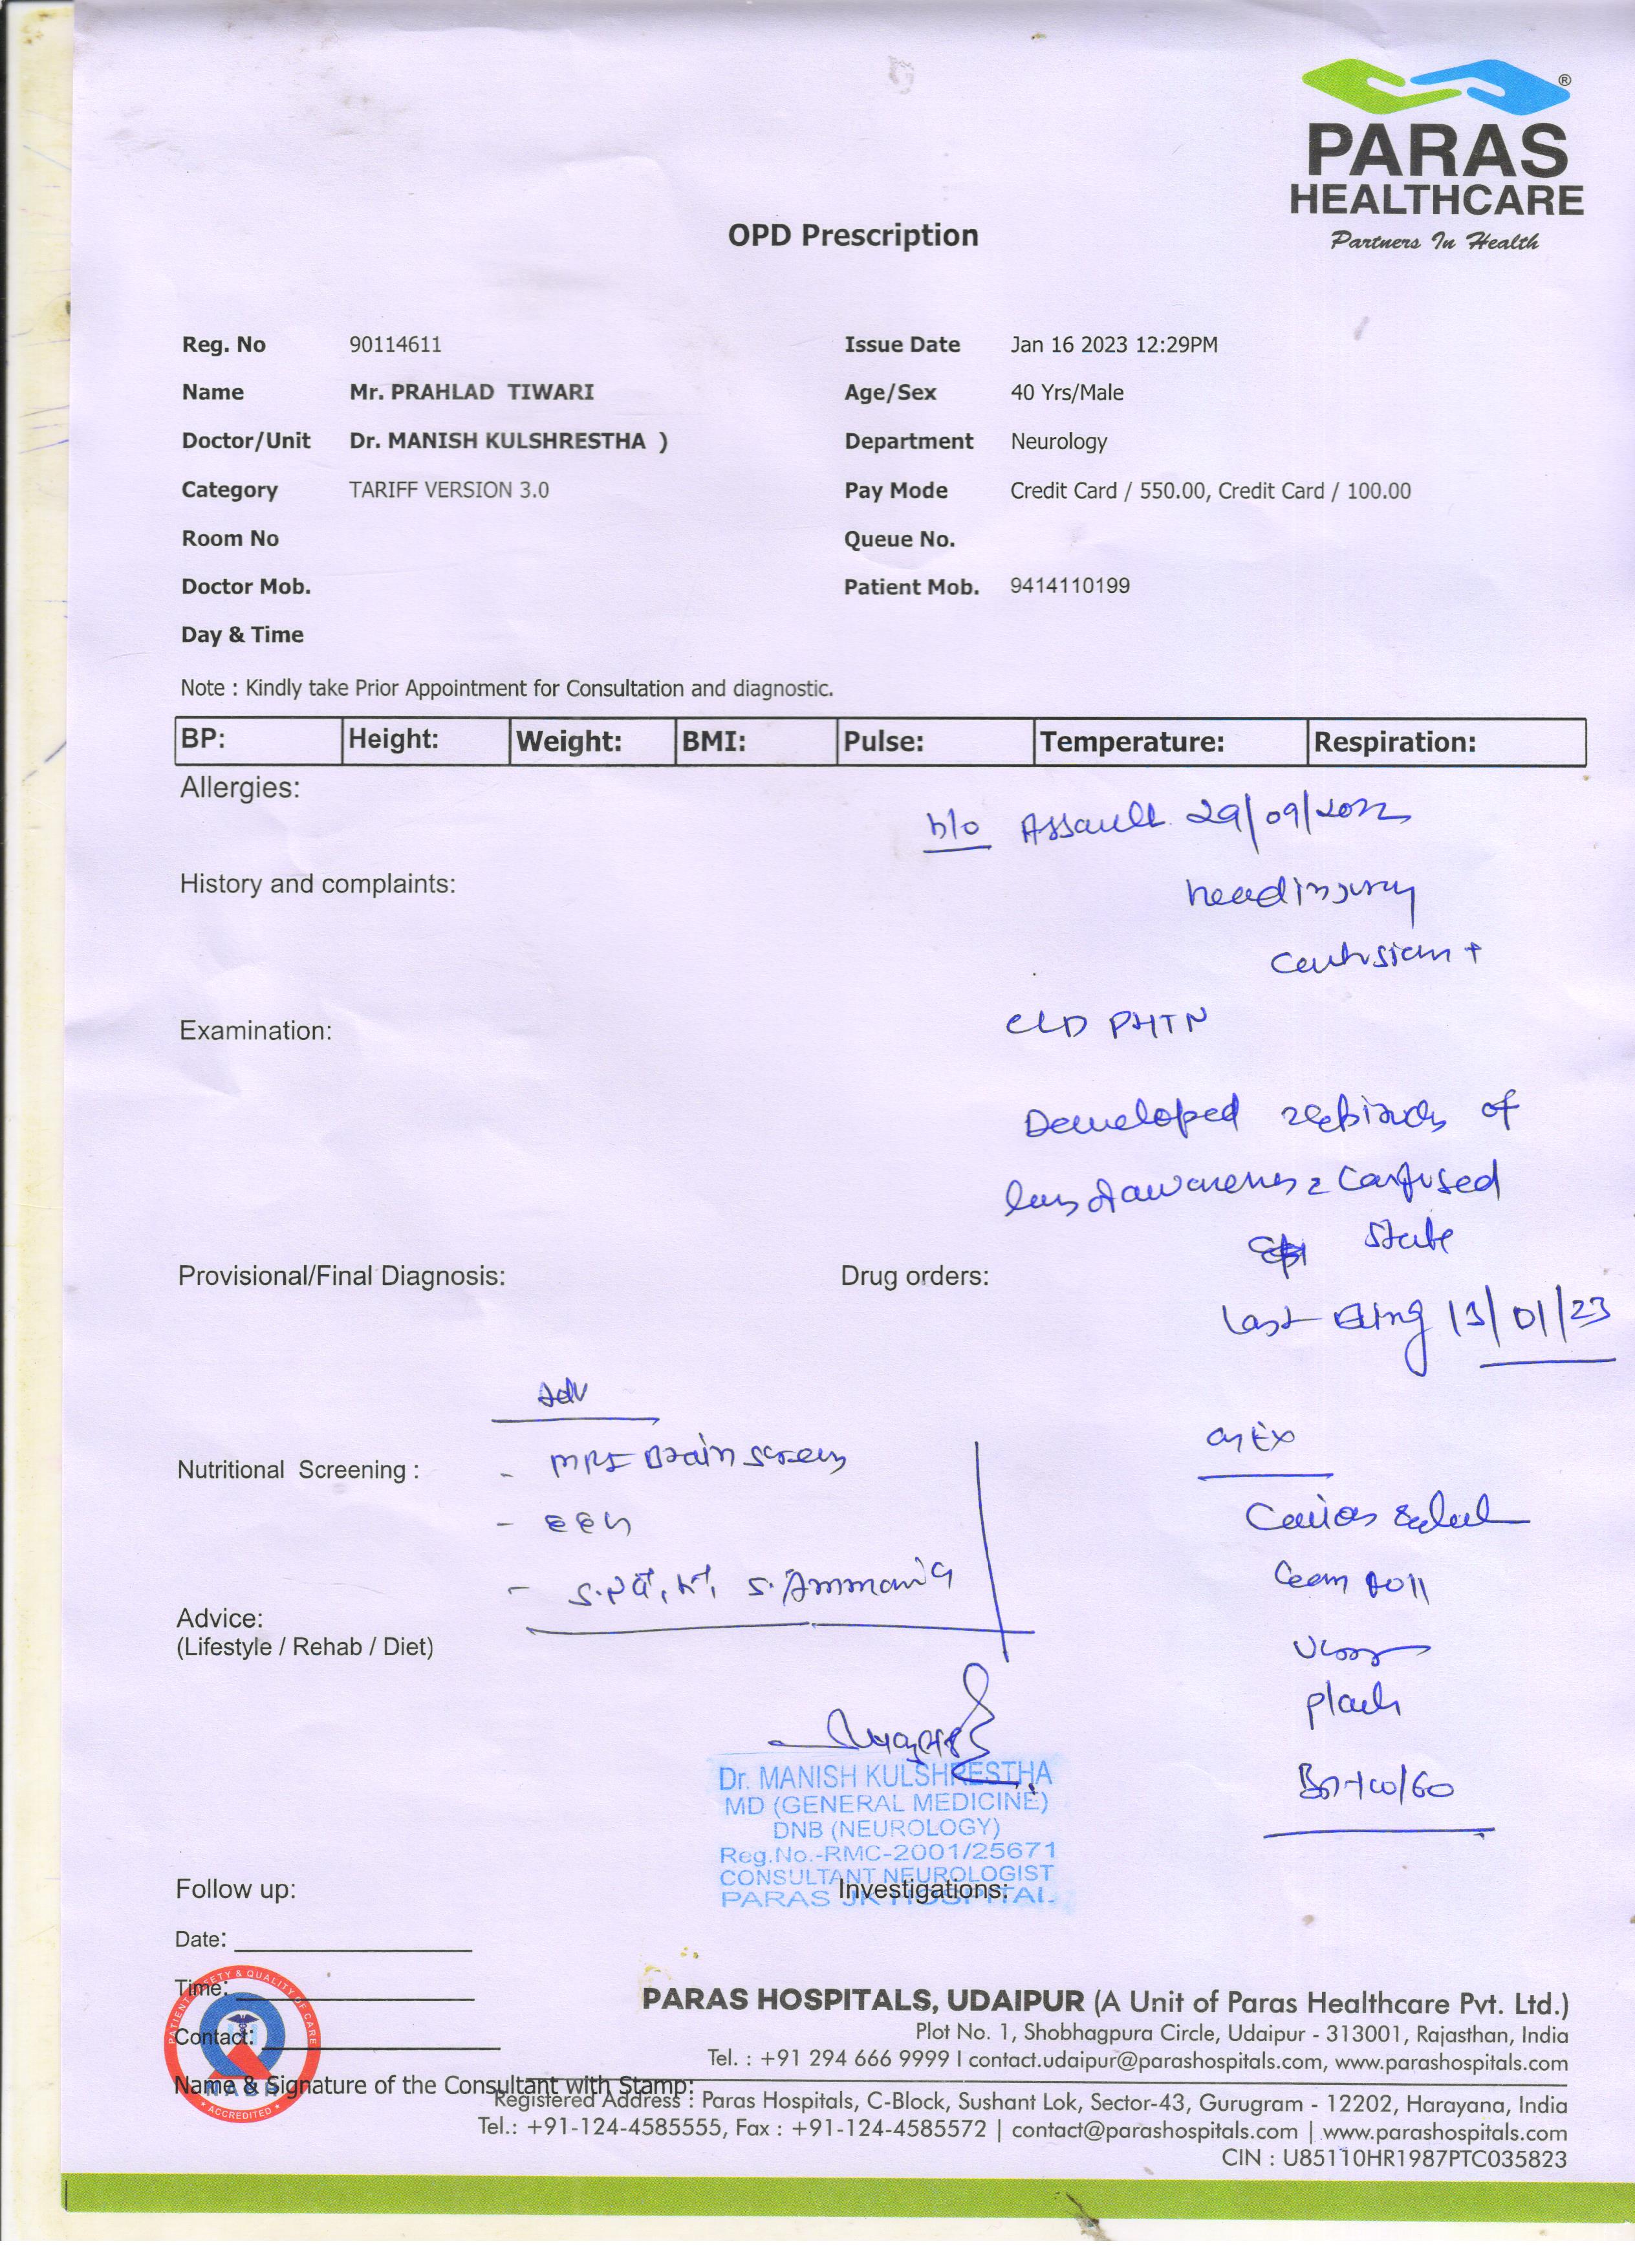 ®
PARAS
HEALTHCARE
Partners In Health
OPD Prescription
Reg. No 90114611 Issue Date Jan 16 2023 12:29PM
Name Mr. PRAHLAD TIWARI Age/Sex 40 Yrs/Male
Doctor/Unit Dr. MANISH KULSHRESTHA ) Department Neurology
Category TARIFF VERSION 3.0 Pay Mode Credit Card / 550.00, Credit Card / 100.00
Room No Queue No.
Doctor Mob. Patient Mob. 9414110199
Day & Time
Note : Kindly take Prior Appointment for Consultation and diagnostic.
BP: Height: Weight: BMI: Pulse: Temperature: Respiration:
Allergies:
h/o Assault 29/09/2022
History and complaints:
head injury
contusion +
Examination:
CLD PHTN
Developed of
confused
state
Provisional/Final Diagnosis: Drug orders:
Last 13/01/23
Adv
Nutritional Screening :
- MRI Brain screen
- EEG
- S. Ammonia
Advice:
(Lifestyle / Rehab / Diet)
O/Ex
Conscious
plantar
Dr. MANISH KULSHRESTHA
MD (GENERAL MEDICINE)
DNB (NEUROLOGY)
Reg.No.-RMC-2001/25671
CONSULTANT NEUROLOGIST
PARAS JK HOSPITAL
Follow up: Investigations:
Date:
Time:
Contact:
PATIENT SAFETY & QUALITY OF CARE
NABH
• ACCREDITED •
Name & Signature of the Consultant with Stamp:
PARAS HOSPITALS, UDAIPUR (A Unit of Paras Healthcare Pvt. Ltd.)
Plot No. 1, Shobhagpura Circle, Udaipur - 313001, Rajasthan, India
Tel. : +91 294 666 9999 I contact.udaipur@parashospitals.com, www.parashospitals.com
Registered Address : Paras Hospitals, C-Block, Sushant Lok, Sector-43, Gurugram - 12202, Harayana, India
Tel.: +91-124-4585555, Fax : +91-124-4585572 | contact@parashospitals.com | www.parashospitals.com
CIN : U85110HR1987PTC035823